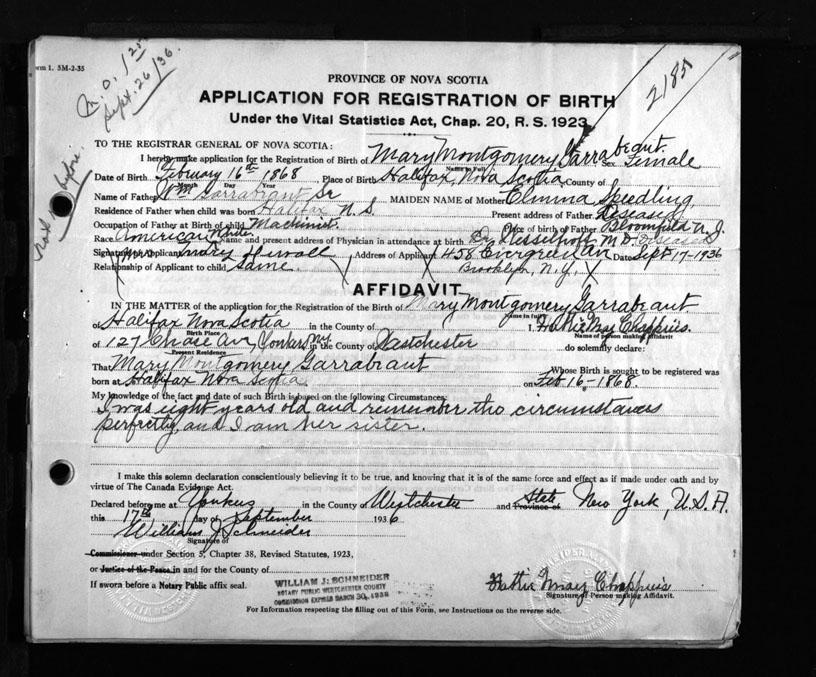 Form 1. 5M-2-35
M.O. 1 25
Sept. 26/36.
2185
PROVINCE OF NOVA SCOTIA
APPLICATION FOR REGISTRATION OF BIRTH
Under the Vital Statistics Act, Chap. 20, R. S. 1923
TO THE REGISTRAR GENERAL OF NOVA SCOTIA:
I hereby make application for the Registration of Birth of Mary Montgomery Garrabrant. Sex Female
Name in Full
Date of Birth February 16th 1868 Place of Birth Halifax, Nova Scotia County of
Month Day Year
Name of Father Wm Garrabrant Sr MAIDEN NAME of Mother Elmina Speedling
Residence of Father when child was born Halifax N.S. Present address of Father Deseased
Occupation of Father at Birth of child Machinist. Place of Birth of Father Bloomfield N.J.
Race American White Name and present address of Physician in attendance at birth Dr M.D. Diseased
Signature of Applicant Mrs Mary Address of Applicant 458 Evergreen Av Date Sept 17-1936
Relationship of Applicant to child Same. Brooklyn, N.Y.
AFFIDAVIT
IN THE MATTER of the application for the Registration of the Birth of Mary Montgomery Garrabrant.
Name in full
of Halifax Nova Scotia in the County of I, Hattie May Chappuis.
Birth Place Name of person making Affidavit
of 127 Chase Av, Yonkers N.Y. in the County of Westchester do solemnly declare:
Present Residence
That Mary Montgomery Garrabrant Whose Birth is sought to be registered was
born at Halifax Nova Scotia on Feb 16-1868.
My knowledge of the fact and date of such Birth is based on the following Circumstances:
I was eight years old and remember the circumstances
perfectly, and I am her sister.
I make this solemn declaration conscientiously believing it to be true, and knowing that it is of the same force and effect as if made under oath and by
virtue of The Canada Evidence Act.
Declared before me at Yonkers in the County of Westchester and Province of State New York, U.S.A.
this 17th day of September 1936
William J Schneider
Signature of
Commissioner under Section 5, Chapter 38, Revised Statutes, 1923,
or Justice of the Peace in and for the County of
If sworn before a Notary Public affix seal.
WILLIAM J. SCHNEIDER
NOTARY PUBLIC WESTCHESTER COUNTY
COMMISSION EXPIRES MARCH 30, 1938
Hattie May Chappuis
Signature of Person making Affidavit.
For Information respecting the filling out of this Form, see Instructions on the reverse side.